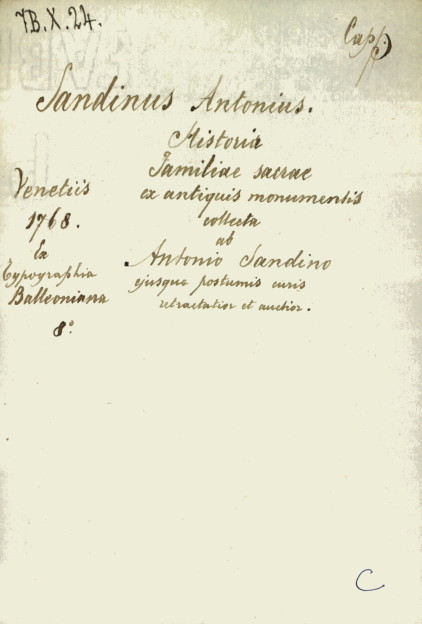 7B.X.24.
Capp.
Sandinus Antonius.
Historia
Familiae sacrae
ex antiquis monumentis
collecta
ab
Antonio Sandino
ejusque postumis curis
retractatior et auctior.
Venetiis
1768.
Ex
Typographia
Balleoniana
8°
C